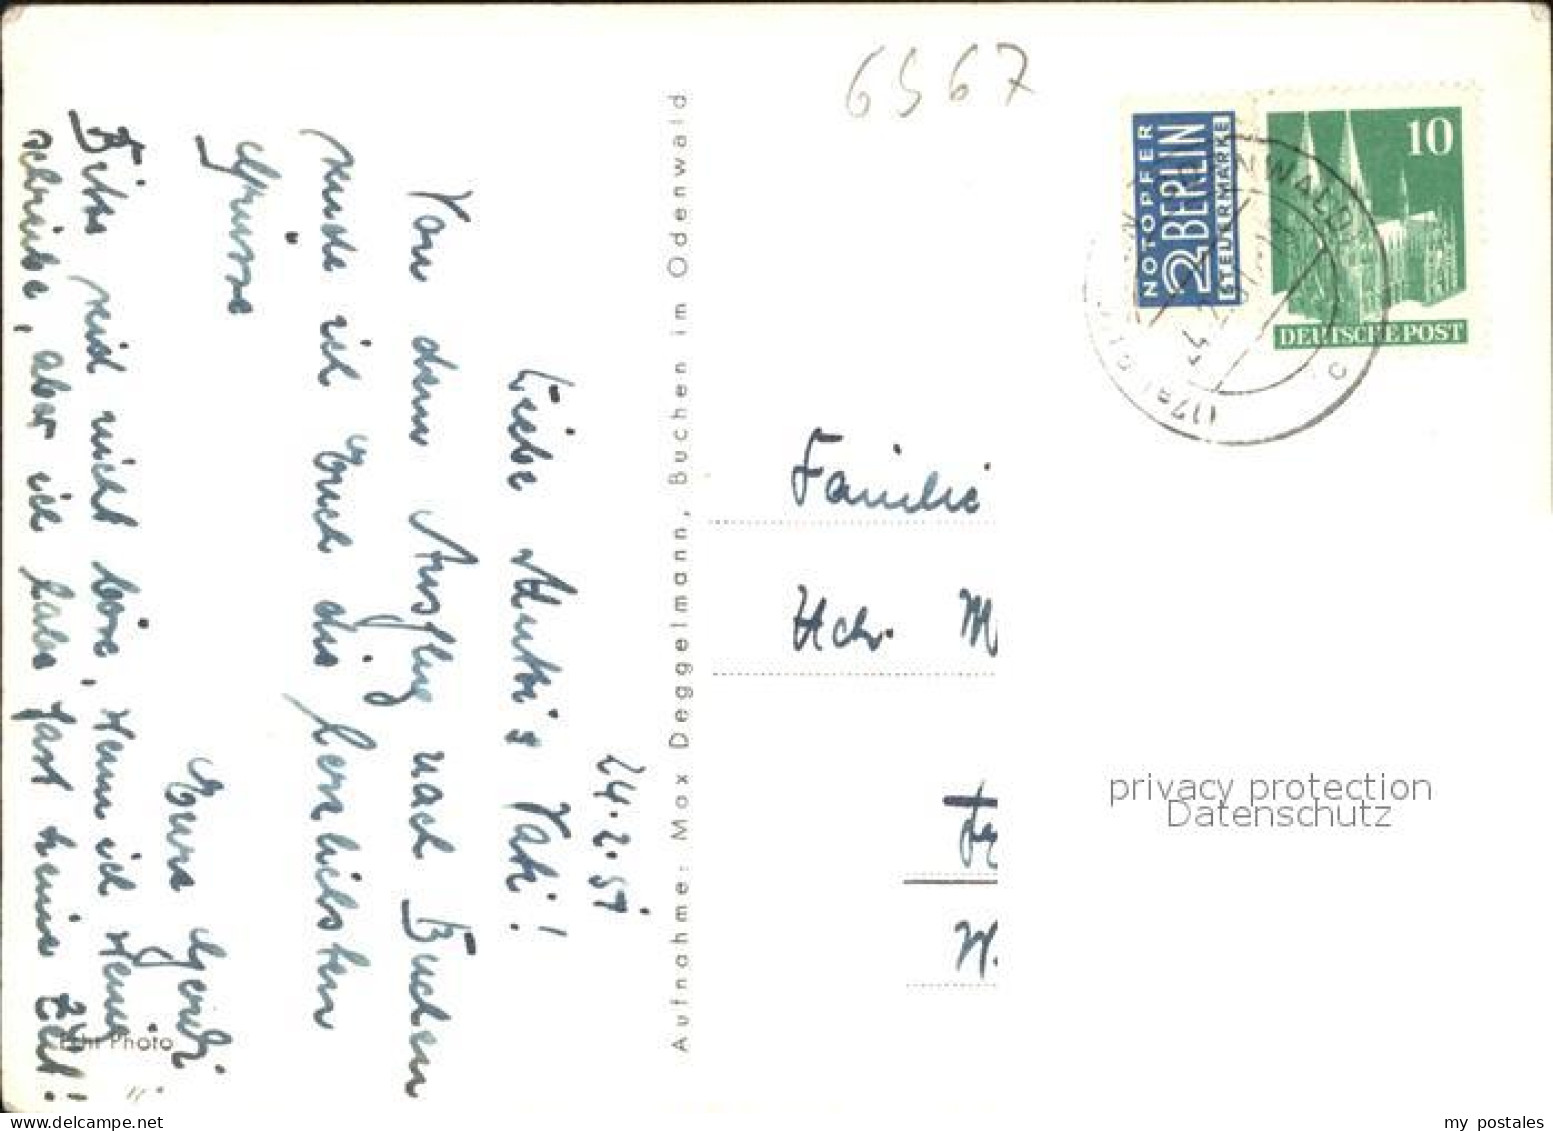 6567
24.2.51
Liebe Mutti's Vati!
Von dem Ausflug nach Buchen
sende ich Euch die herzlichsten
Grüsse
Eure Gerdi
Bitte seid nicht böse, wenn ich wenig
schreibe, aber ich habe fast keine Zeit!
Echt Photo
Aufnahme: Max Deggelmann, Buchen im Odenwald
NOTOPFER
2 BERLIN
STEUERMARKE
10
DEUTSCHE POST
(17a)
Familie
Hch. M
W.
privacy protection
Datenschutz
my postales